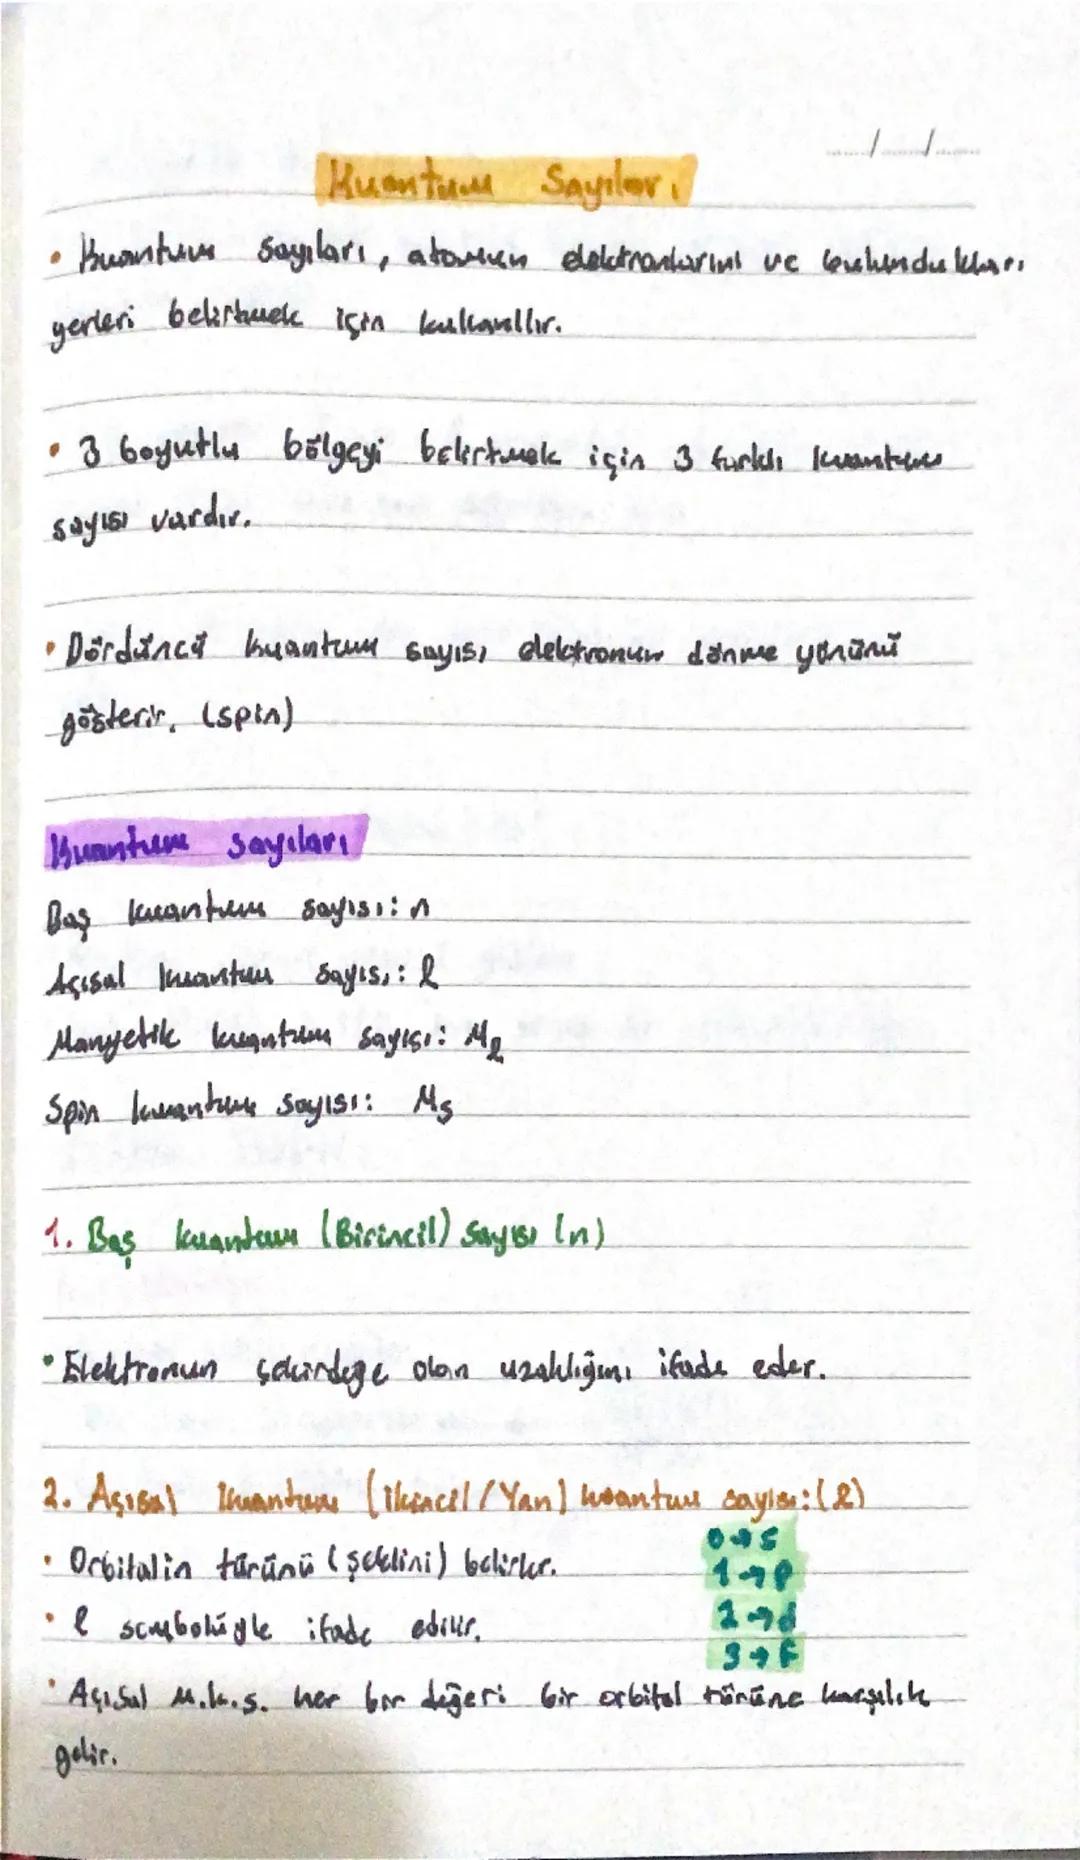 ..../..../....
Kuantum Sayıları
• Kuantum sayıları, atomun elektronlarını ve bulundukları
yerleri belirtmek için kullanılır.
• 3 boyutlu bölgeyi belirtmek için 3 farklı kuantum
sayısı vardır.
• Dördüncü kuantum sayısı elektronun dönme yönünü
gösterir. (spin)
Kuantum sayıları
Baş kuantum sayısı: n
Açısal kuantum sayısı: l
Manyetik kuantum sayısı: Ml
Spin kuantum sayısı: Ms
1. Baş kuantum (Birincil) sayısı (n)
• Elektronun çekirdeğe olan uzaklığını ifade eder.
2. Açısal kuantum (İkincil / Yan) kuantum sayısı: (l)
0→s
• Orbitalin türünü (şeklini) belirler.
1→p
• l sembolüyle ifade edilir.
2→d
3→f
• Açısal M.k.s. her bir değeri bir orbital türüne karşılık
gelir.